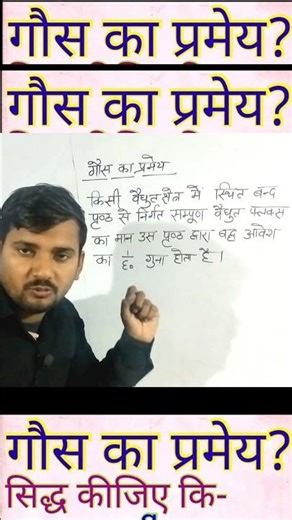 गौस का प्रमेय?
गौस का प्रमेय?
गौस का प्रमेय
किसी वैधुत क्षेत्र में स्थित बन्द
पृष्ठ से निर्गत सम्पूर्ण वैधुत फ्लक्स
का मान उस पृष्ठ द्वारा बद्ध आवेश
का 1/ε₀ गुना होता है।
गौस का प्रमेय?
सिद्ध कीजिए कि-